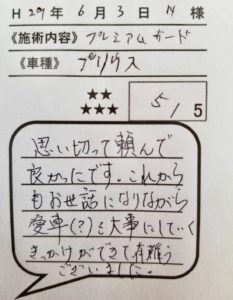 H 29年 6月 3日 N 様
《施術内容》 プレミアムガード
《車種》 プリウス
★★
★★★
5/5
思い切って頼んで
良かったです。これから
もお世話になりながら
愛車(?)を大事にしていく
きっかけができて有難う
ございました。